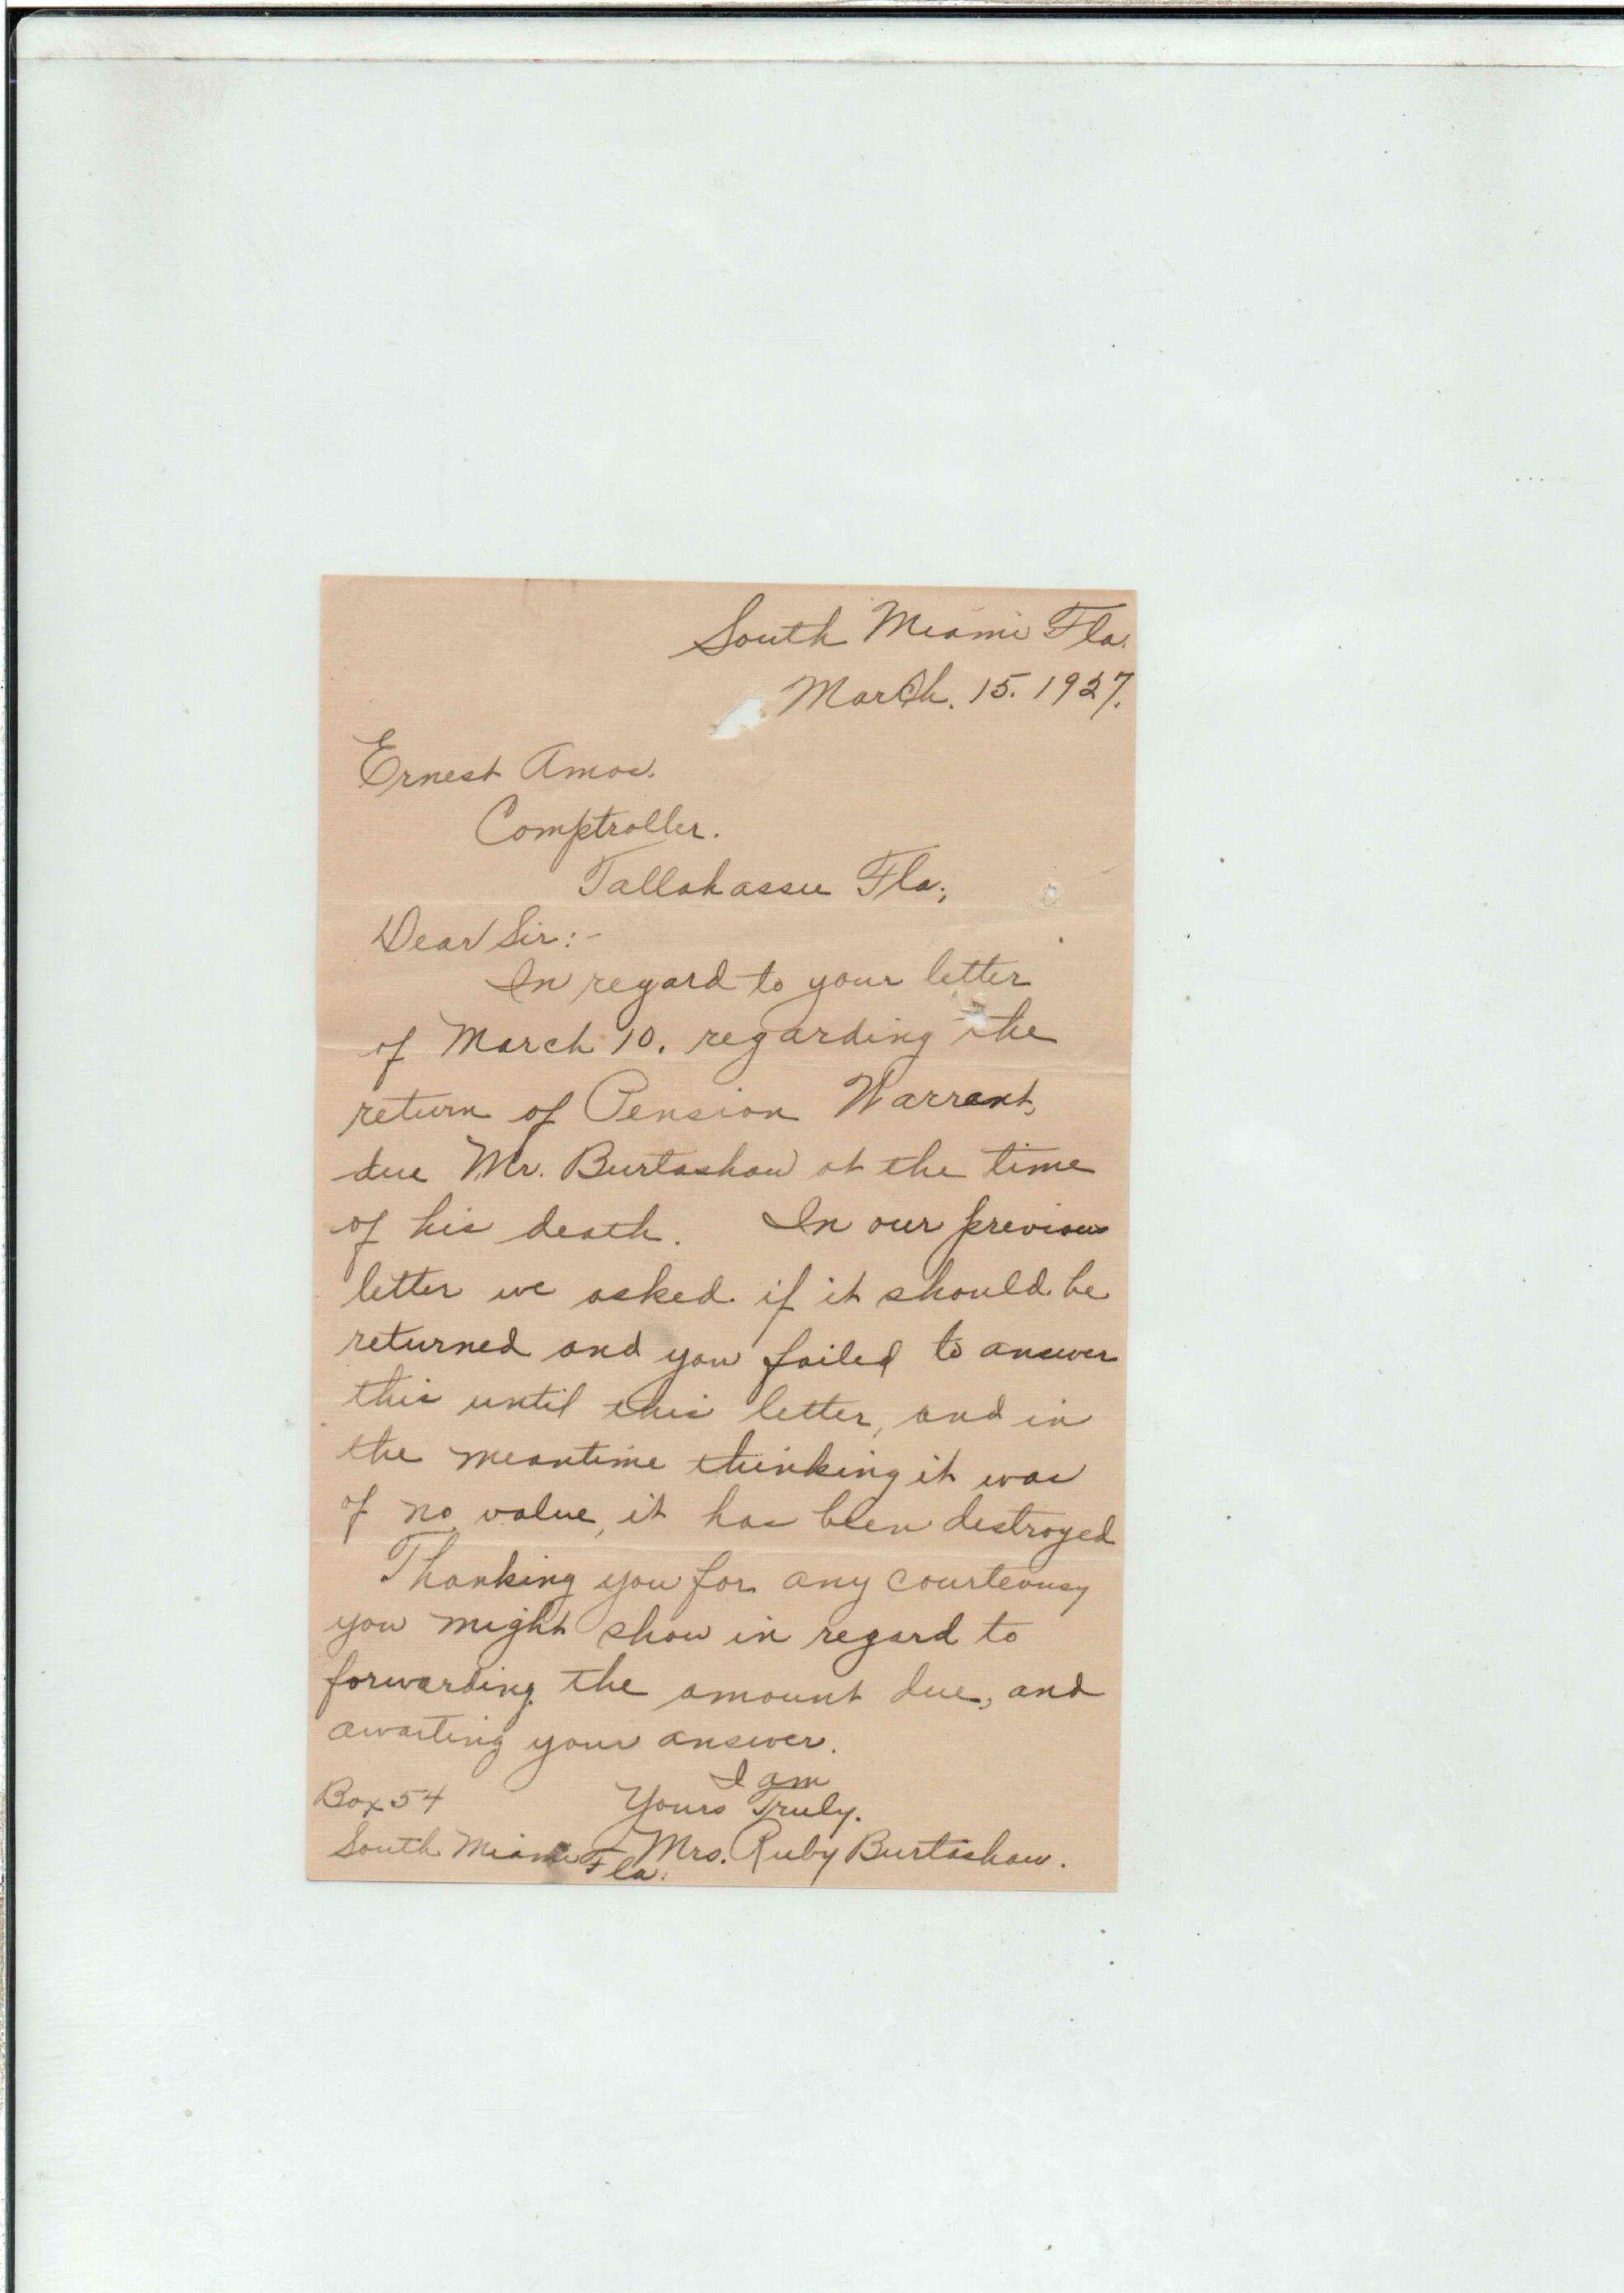 South Miami Fla.
March. 15. 1927.
Ernest Amos.
Comptroller.
Tallahassee Fla;
Dear Sir:-
In regard to your letter
of March 10. regarding the
return of Pension Warrant,
due Mr. Burtashaw at the time
of his death. In our previous
letter we asked if it should be
returned and you failed to answer
this until this letter, and in
the meantime thinking it was
of no value, it has been destroyed
Thanking you for any courteousy
you might show in regard to
forwarding the amount due, and
awaiting your answer.
I am
Yours Truly.
Mrs. Ruby Burtashaw.
Box 54
South Miami
Fla.